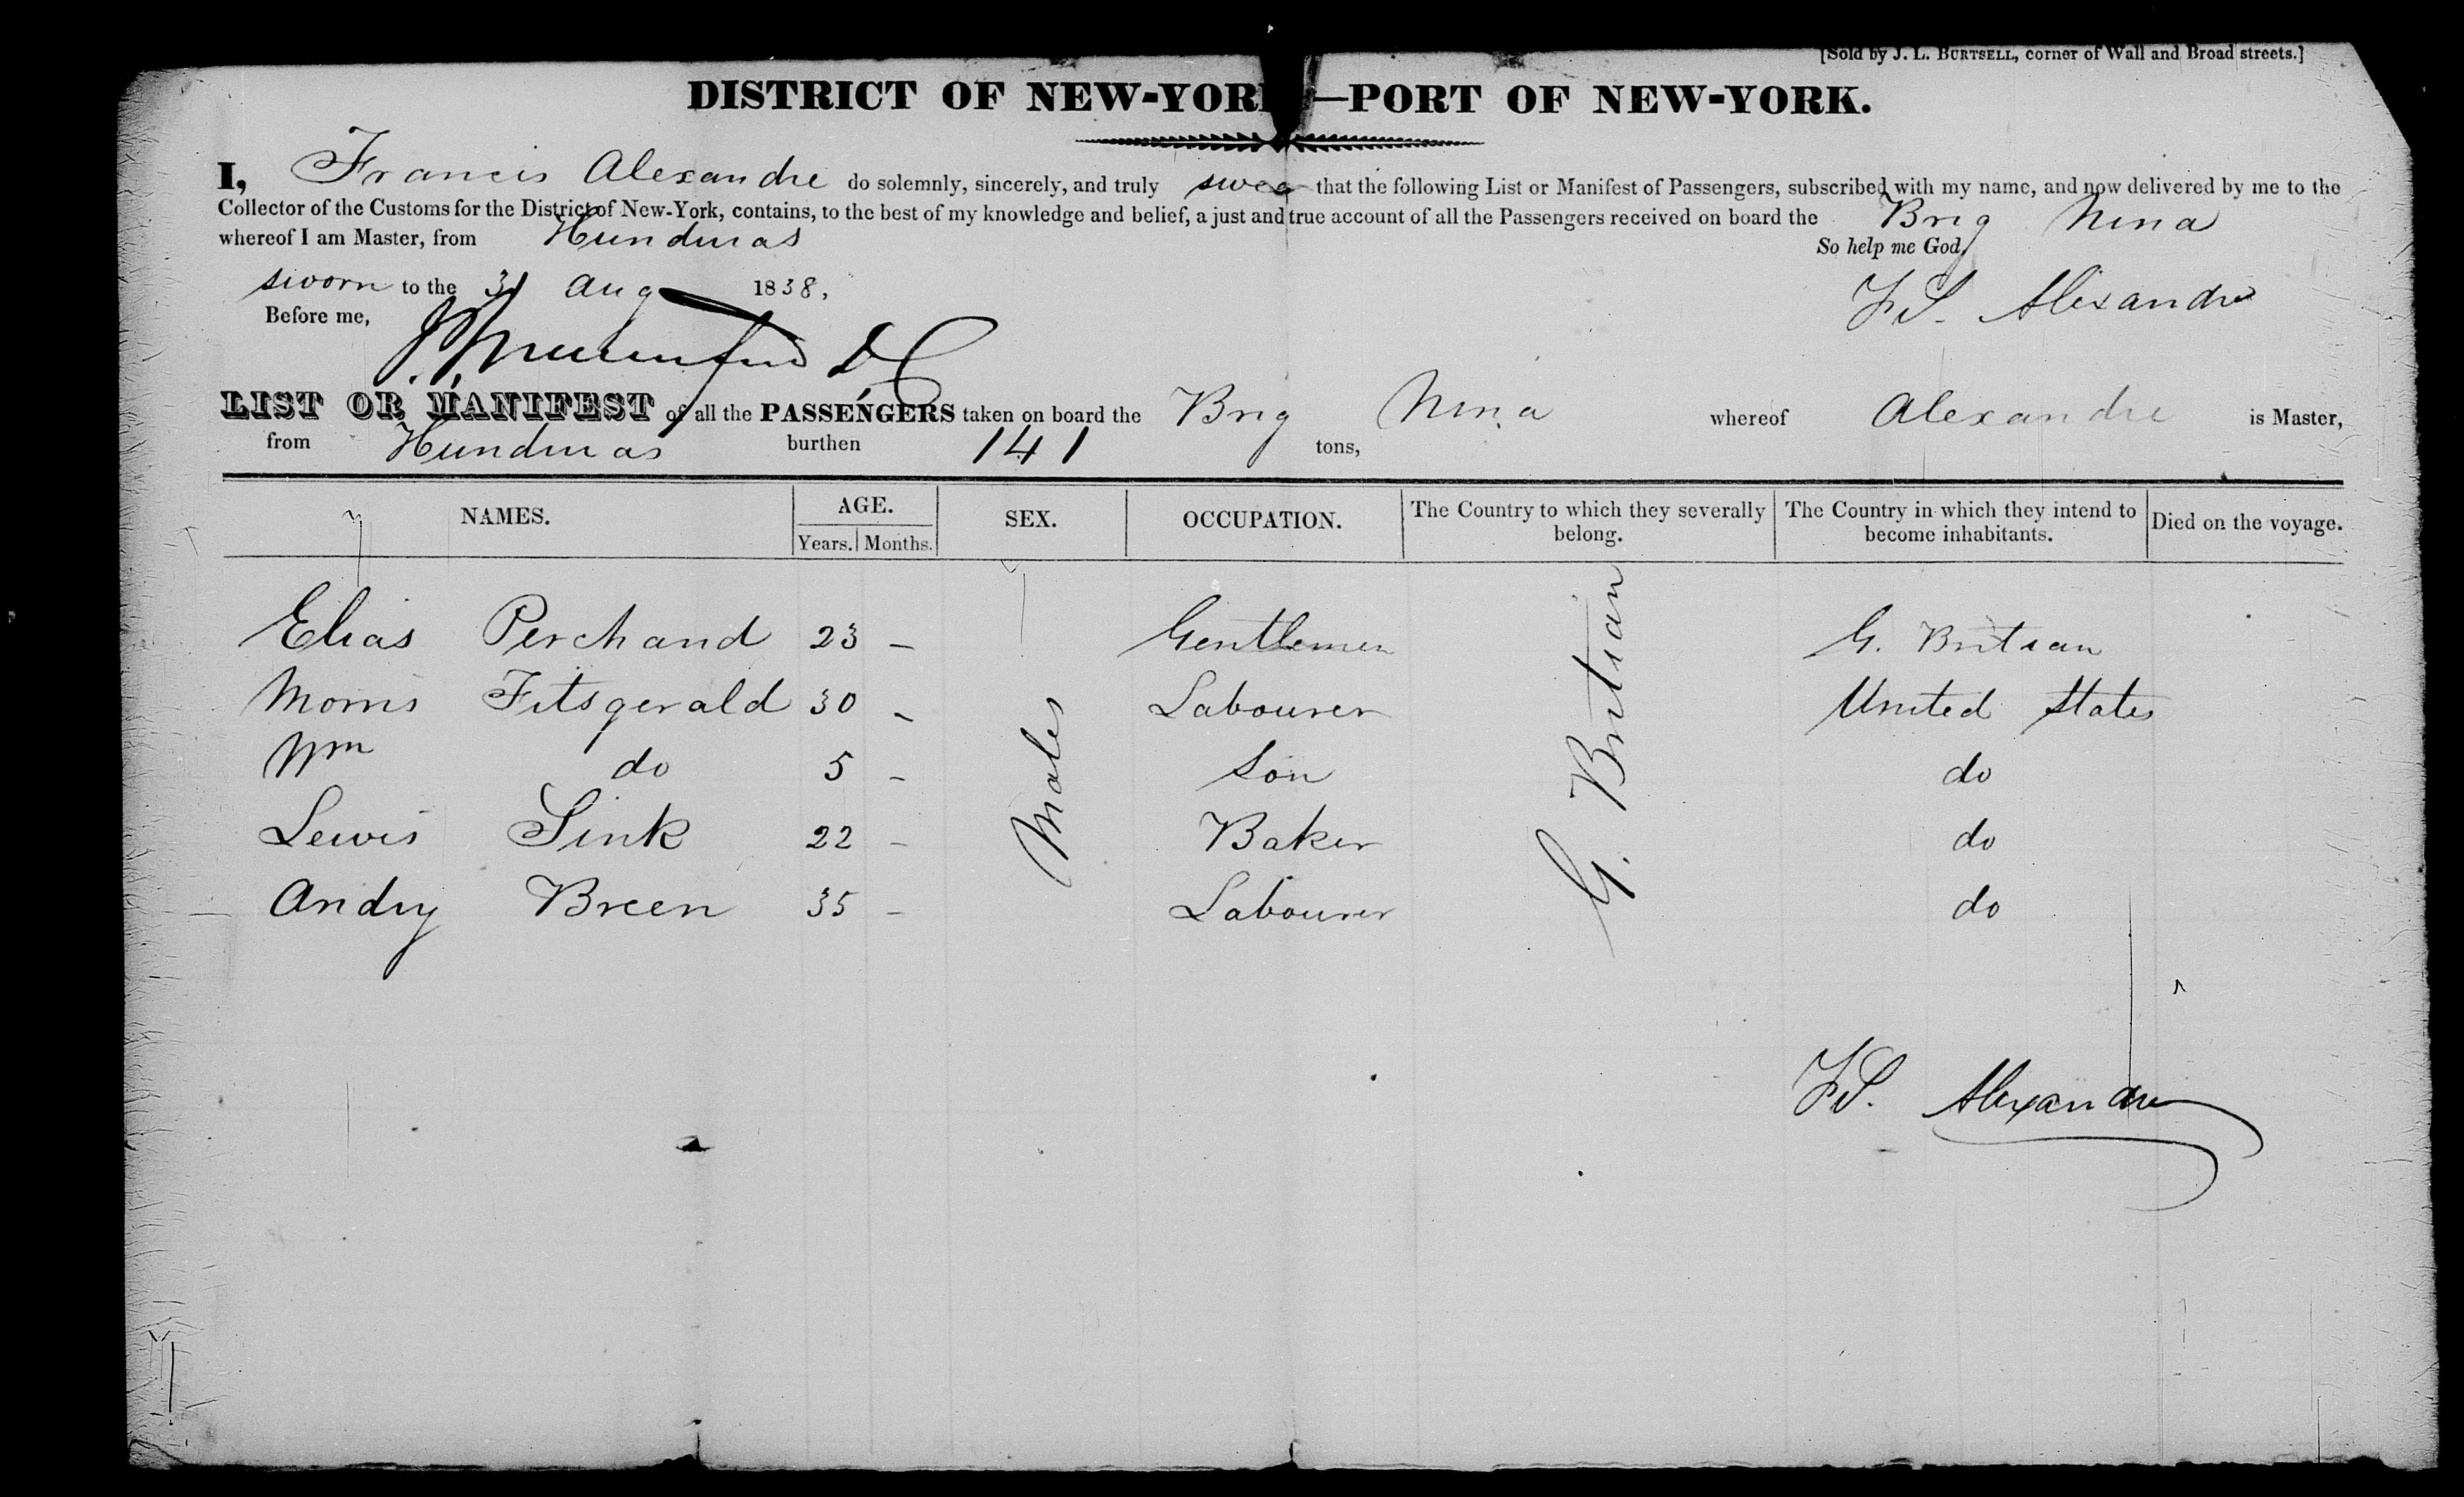 [Sold by J. L. BURTSELL, corner of Wall and Broad streets.]
DISTRICT OF NEW-YORK—PORT OF NEW-YORK.
I, Francis Alexandre do solemnly, sincerely, and truly swear that the following List or Manifest of Passengers, subscribed with my name, and now delivered by me to the
Collector of the Customs for the District of New-York, contains, to the best of my knowledge and belief, a just and true account of all the Passengers received on board the Brig Nina
whereof I am Master, from Hunduras So help me God.
sworn to the 31 Aug 1838, FS. Alexandre
Before me, DC
LIST OR MANIFEST of all the PASSENGERS taken on board the Brig Nina whereof Alexandre is Master,
from Hunduras burthen 141 tons,
NAMES. AGE. SEX. OCCUPATION. The Country to which they severally belong. The Country in which they intend to become inhabitants. Died on the voyage.
Years. Months.
Elias Perchand 23 – Gentlemen G. Britian
Morris Fitsgerald 30 – Labourer United States
Wm do 5 – Son do
Lewis Sink 22 – Baker do
Andry Breen 35 – Labourer do
Males
G. Britian
FS. Alexandre